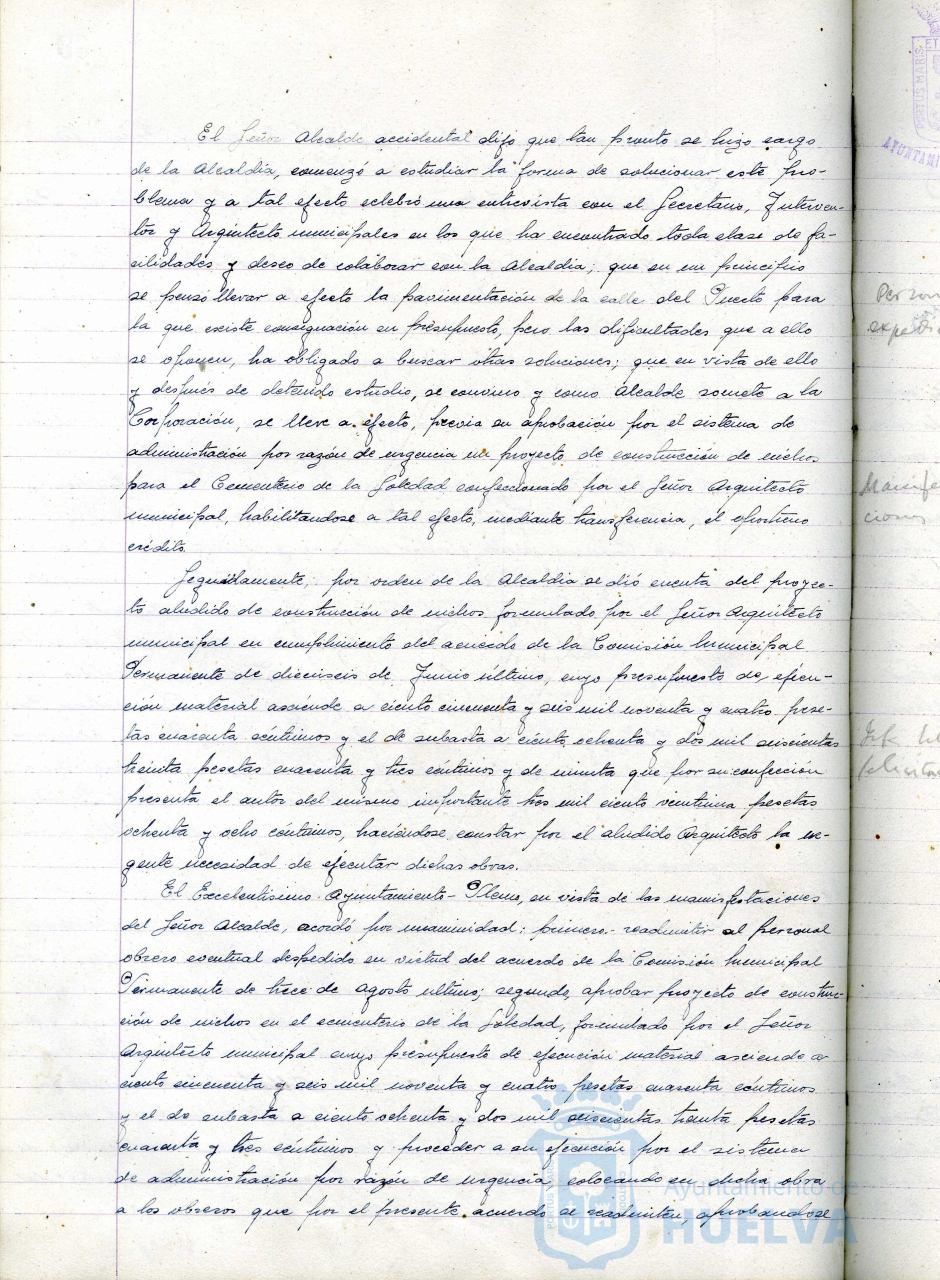 El Señor Alcalde accidental dijo que tan pronto se hizo cargo
de la Alcaldia, comenzó a estudiar la forma de solucionar este pro-
blema y a tal efecto celebró una entrevista con el Secretario, Interven-
tor y Arquitecto municipales en los que ha encontrado toda clase de fa-
cilidades y deseo de colaborar con la Alcaldia; que en un principio
se pensó llevar a efecto la pavimentación de la calle del Puerto para
la que existe consignación en presupuesto, pero las dificultades que a ello
se oponen, ha obligado a buscar otras soluciones; que en vista de ello
y después de detenido estudio, se convino y como Alcalde somete a la
Corporación, se lleve a efecto, previa su aprobación por el sistema de
administración por razón de urgencia un proyecto de construcción de nichos
para el Cementerio de la Soledad confeccionado por el Señor Arquitecto
municipal, habilitandose a tal efecto, mediante transferencia, el oportuno
crédito.
Seguidamente, por orden de la Alcaldia se dió cuenta del proyec-
to aludido de construcción de nichos formulado por el Señor Arquitecto
municipal en cumplimiento del acuerdo de la Comisión Municipal
Permanente de dieciseis de Junio último, cuyo presupuesto de ejecu-
ción material asciende a ciento cincuenta y seis mil noventa y cuatro pese-
tas cuarenta céntimos y el de subasta a ciento ochenta y dos mil seiscientas
treinta pesetas cuarenta y tres céntimos y de minuta que por su confección
presenta el autor del mismo importante tres mil ciento veintiuna pesetas
ochenta y ocho céntimos, haciéndose constar por el aludido Arquitecto la ur-
gente necesidad de ejecutar dichas obras.
El Excelentisimo Ayuntamiento-Pleno, en vista de las manifestaciones
del Señor Alcalde, acordó por unanimidad: primero.- readmitir al personal
obrero eventual despedido en virtud del acuerdo de la Comisión Municipal
Permanente de trece de Agosto ultimo; segundo, aprobar proyecto de construc-
ción de nichos en el cementerio de la Soledad, formulado por el Señor
Arquitecto municipal cuyo presupuesto de ejecución material asciende a
ciento cincuenta y seis mil noventa y cuatro pesetas cuarenta céntimos
y el de subasta a ciento ochenta y dos mil seiscientas treinta pesetas
cuarenta y tres céntimos y proceder a su ejecución por el sistema
de administración por razón de urgencia, colocando en dicha obra
a los obreros que por el presente acuerdo se readmiten, aprobandose
Ayuntamiento de
HUELVA
PORTUS MARIS
ET
AYUNTAMI
Person
expedie
Manife
ciones
felicitac